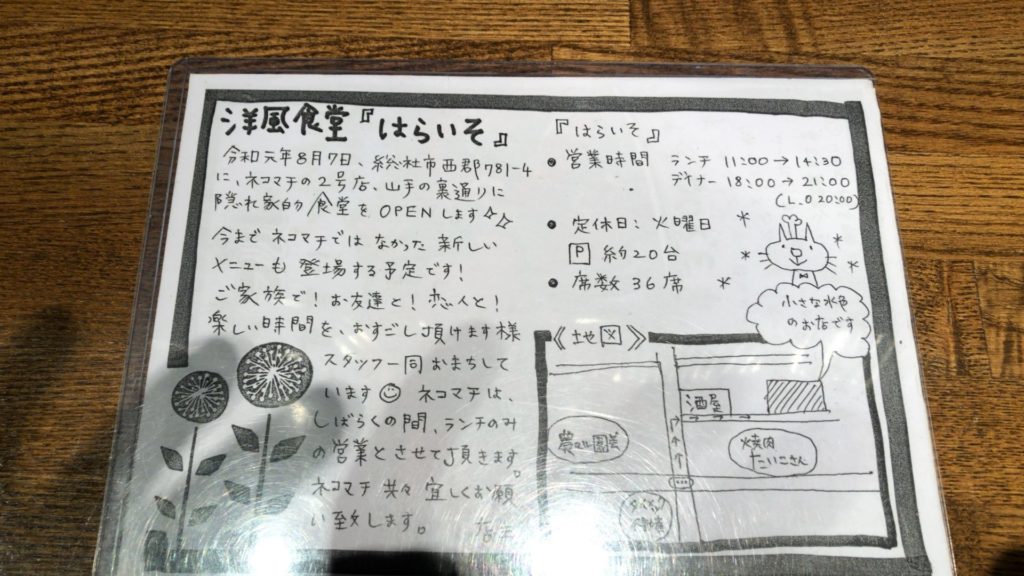 洋風食堂『はらいそ』
令和元年8月7日、総社市西郡781-4
に、ネコマチの2号店、山手の裏通りに
隠れ家的食堂をOPENします☆☆
今までネコマチではなかった新しい
メニューも登場する予定です!
ご家族で!お友達と!恋人と!
楽しい時間を、おすごし頂けます様
スタッフ一同おまちして
います☺ ネコマチは、
しばらくの間、ランチのみ
の営業とさせて頂きます。
ネコマチ共々宜しくお願
い致します。
店主
『はらいそ』
● 営業時間 ランチ 11:00→14:30
ディナー 18:00→21:00
(L.O 20:00)
● 定休日: 火曜日
P 約20台
● 席数 36席
小さな水色
のお店です
《地図》
酒屋
農マル園芸
焼肉
たいこさん